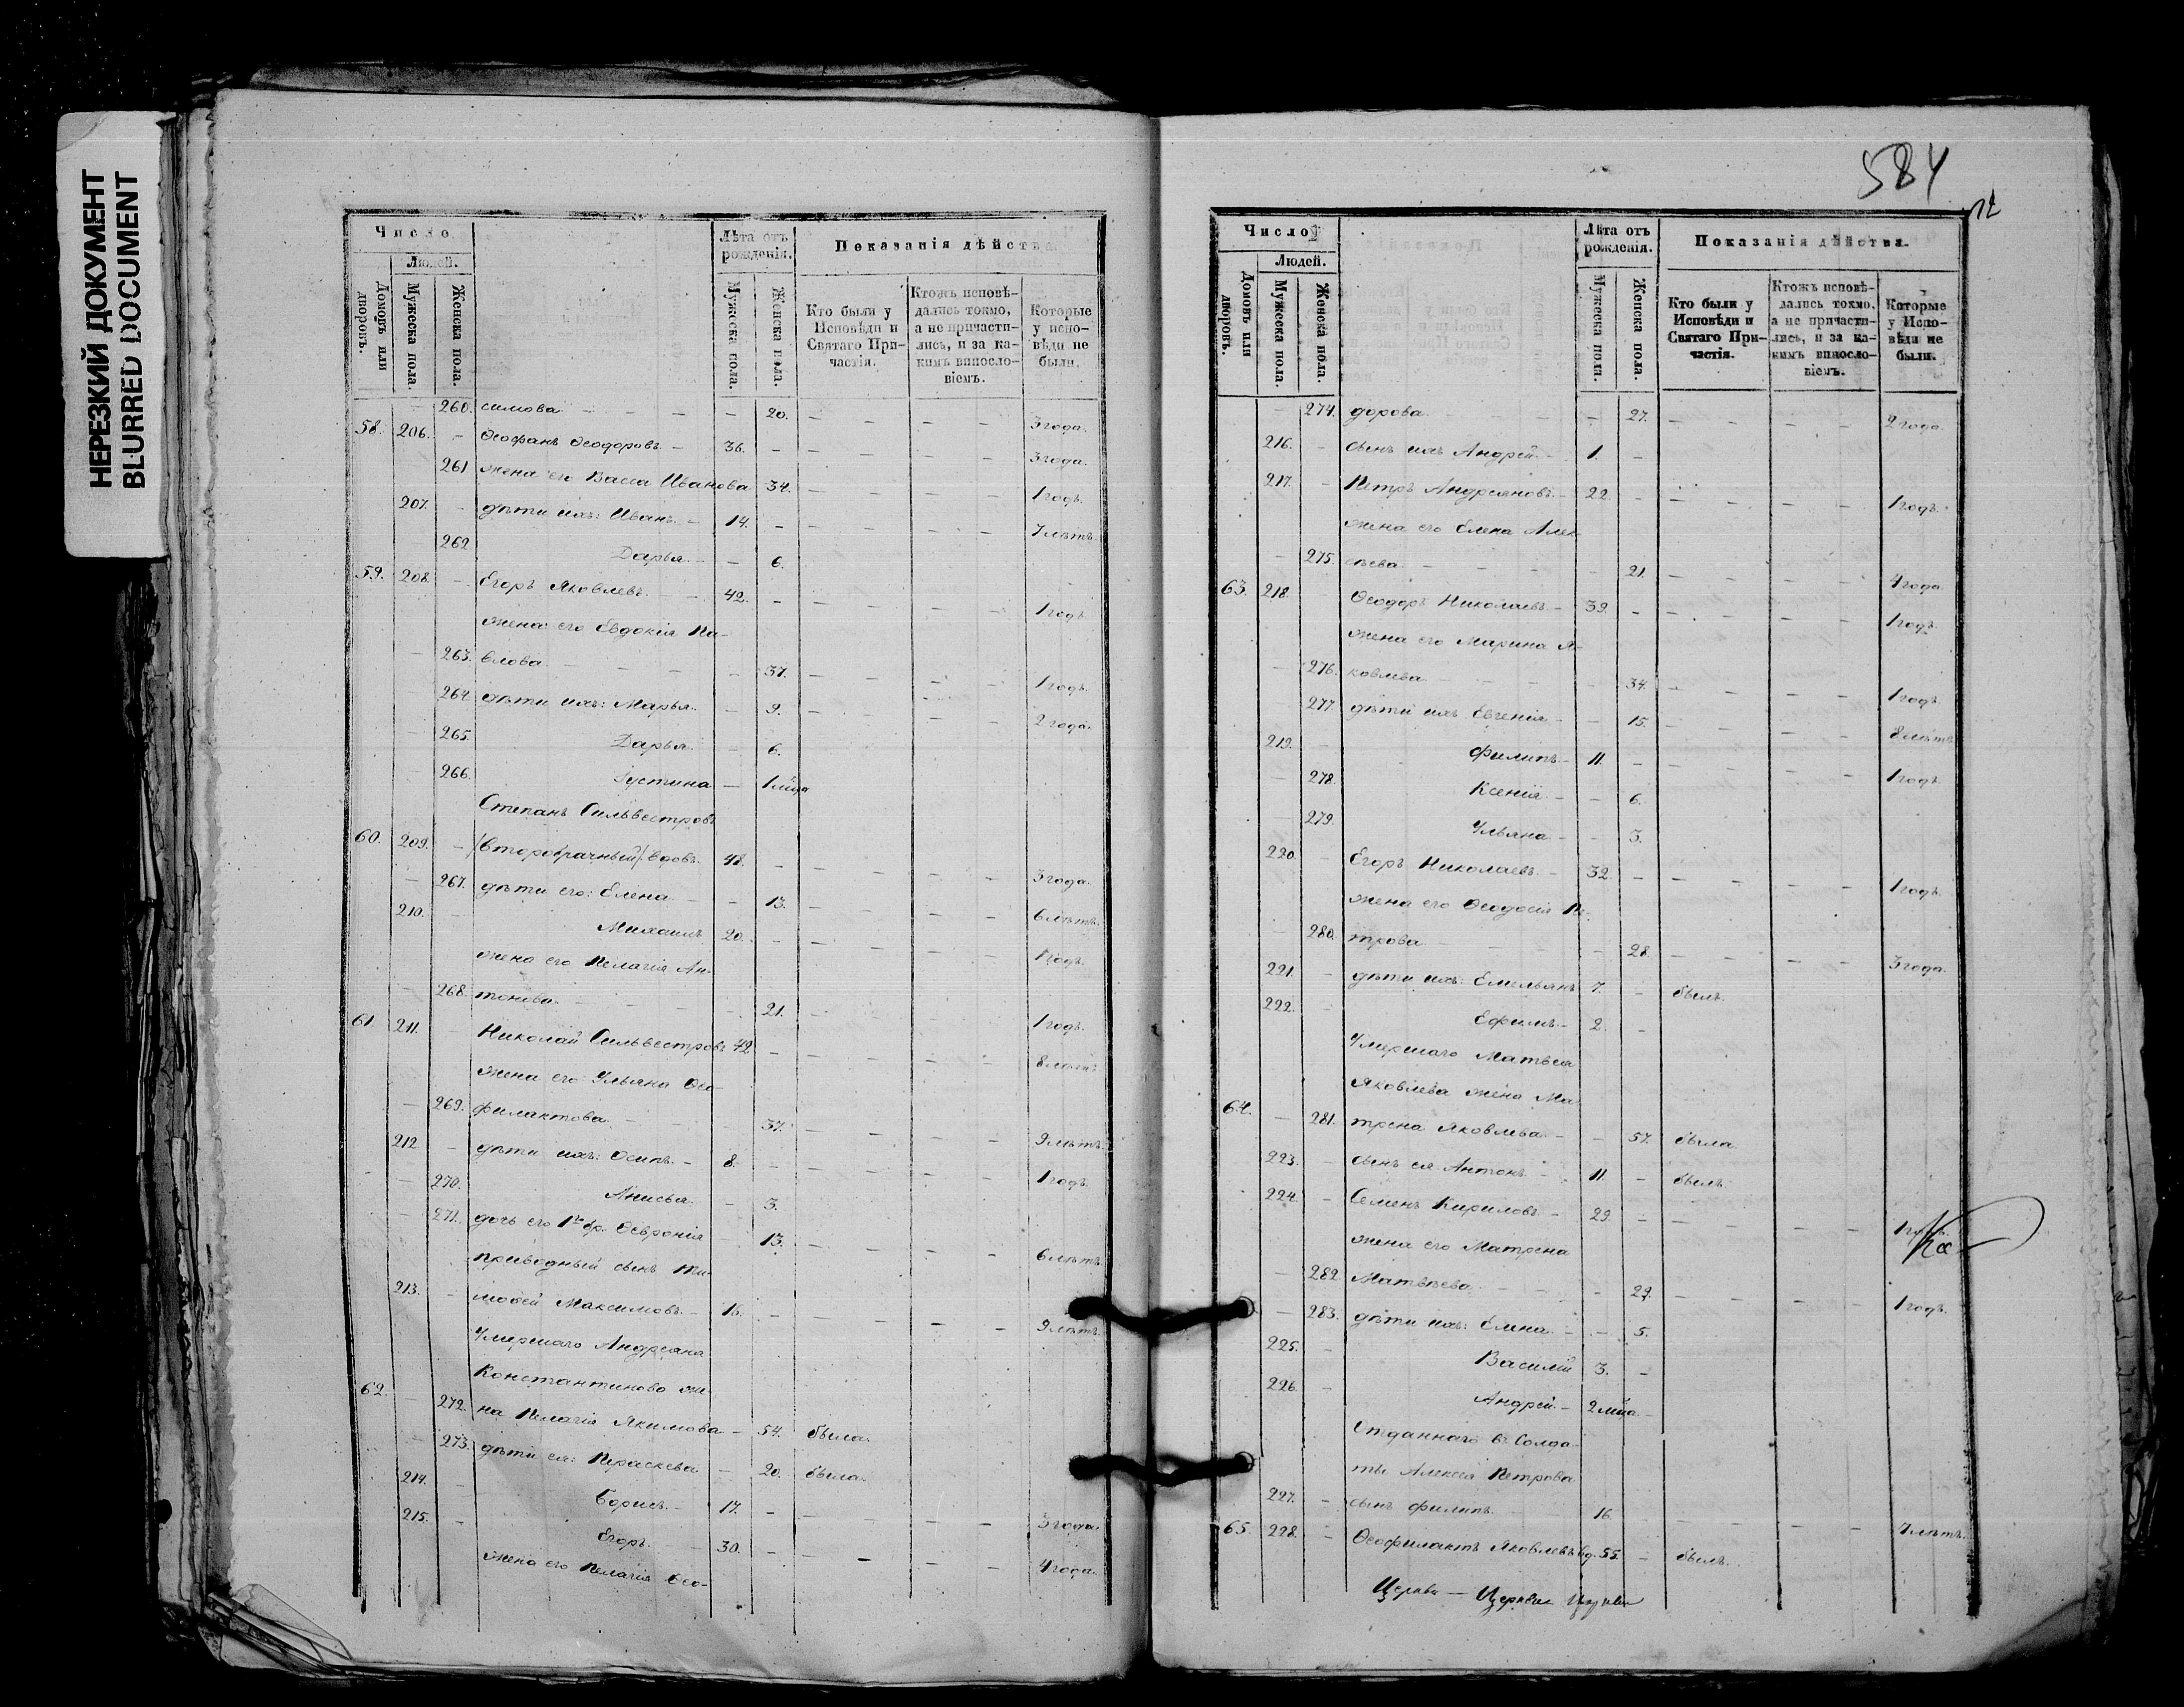 НЕРЕЗКИЙ ДОКУМЕНТ
BLURRED DOCUMENT
Число
Людей.
Домовъ или дворовъ.
Мужеска пола.
Женска пола.
Лѣта отъ рожденія.
Мужеска пола.
Женска пола.
Показанія дѣйства.
Кто были у Исповѣди и Святаго При-частія.
Ктожъ исповѣ-дались токмо, а не причасти-лись, и за ка-кимъ виносло-віемъ.
Которые у испо-вѣди не были.
— 260. симова — — — — 20. — — — — 3 года.
58. 206. — Ѳеофанъ Ѳеодоровъ. — 36. — — — — — 3 года.
261 жена его Васса Иванова 34. — — — — 1 годъ.
207. — дѣти ихъ: Иванъ. — 14. — — — — — 7 лѣтъ.
262 Дарья. — — 6.
59. 208. — Егоръ Яковлевъ. — 42. — — — — — 1 годъ
жена его Евдокія Па-
— 263. влова. — — — — 37. — — — — 1 годъ.
— 264 дѣти ихъ: Марья. — 9. — — — — 2 года.
— 265. Дарья. — 6.
— 266. Іустина — 1 мца
Степанъ Сильвестровъ
60. 209. — /второбрачный/ вдовъ. 48. — — — — — 3 года.
— 267. дѣти его: Елена. — — 13. — — — — 6 лѣтъ.
210. — Михаилъ 20. — — — — — 1 годъ.
жена его Пелагія Ан-
— 268. тонова. — — — — 21. — — — — 1 годъ.
61. 211. — Николай Сильвестровъ 42 — — — — — 8 лѣтъ
жена его Ульяна Ѳео-
— 269. филактова. — — — 37. — — — — 9 лѣтъ.
212 — дѣти ихъ: Осипъ. — 8. — — — — — 1 годъ.
— 270. Анисья. — 3.
— 271. дочь его 1го бр. Ѳевронія — 13. — — — — 6 лѣтъ.
приводный сынъ Ти-
213. — моѳей Максимовъ. — 15. — — — — — 9 лѣтъ.
Умершаго Андреяна
Константинова же-
62. — 272. на Пелагія Якимова — 54. была.
— 273. дѣти ея: Параскева — 20. была.
214. — Борисъ. — 17. — — — — — 3 года.
215. — Егоръ. — 30. — — — — — 4 года.
жена его Пелагія Ѳео-
584
Число
Людей.
Домовъ или дворовъ.
Мужеска пола.
Женска пола.
Лѣта отъ рожденія.
Мужеска пола.
Женска пола.
Показанія дѣйства.
Кто были у Исповѣди и Святаго При-частія.
Ктожъ исповѣ-дались токмо, а не причасти-лись, и за ка-кимъ виносло-віемъ.
Которые у Испо-вѣди не были.
— 274. дорова. — — — — 27. — — — — 2 года.
216. — сынъ ихъ Андрей. — 1. —
217. — Петръ Андреяновъ. — 22. — — — — — 1 годъ.
жена его Елена Алек-
— 275. сѣева. — — — — 21. — — — — 4 года.
63. 218. Ѳеодоръ Николаевъ. — 39. — — — — — 1 годъ.
жена его Марина Я-
— 276. ковлева — — — — 34. — — — — 1 годъ.
— 277 дѣти ихъ Евгенія — — 15. — — — — 8 лѣтъ
219. — Филипъ. — 11. — — — — — 1 годъ.
— 278. Ксенія. — — 6.
— 279. Ульяна. — — 3.
220. — Егоръ Николаевъ. — 32. — — — — — 1 годъ.
жена его Ѳеодосія Пе-
— 280. трова — — — — 28. — — — — 3 года.
221. — дѣти ихъ: Емельянъ 7. — былъ.
222. — Ефимъ. — 2. —
Умершаго Матвея
Яковлева жена Ма-
64. — 281. трена Яковлева. — — 57. была
223. — сынъ ея Антонъ. — 11. — былъ.
224. — Семенъ Кириловъ. — 29. — — — — — 1
жена его Матрена
— 282 Матвѣева. — — — 29. — — — — 1 годъ.
— 283. дѣти ихъ: Елена. — — 5.
225. — Василій 3. —
226. — Андрей. — 2 мца —
Отданнаго въ Солда-
ты Алексея Петрова
227. — сынъ Филипъ. 16. — — — — — 7 лѣтъ.
65. 228. — Ѳеофилактъ Яковлевъ вд. 55. — былъ.
Церкви —